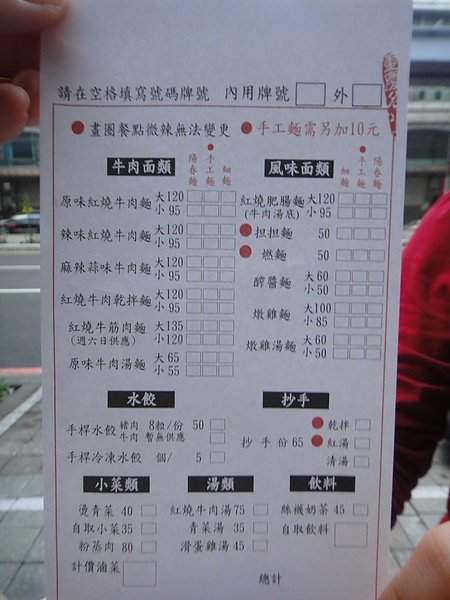 請在空格填寫號碼牌號 內用牌號 外
●畫圈餐點微辣無法變更 ●手工麵需另加10元
牛肉面類 陽春麵 ●手工麵 細麵
原味紅燒牛肉麵 大120
小 95
辣味紅燒牛肉麵 大120
小 95
麻辣蒜味牛肉麵 大120
小 95
紅燒牛肉乾拌麵 大120
小 95
紅燒牛筋肉麵 大135
(週六日供應) 小120
原味牛肉湯麵 大 65
小 55
風味面類 細麵 ●手工麵 陽春麵
紅燒肥腸麵 大120
(牛肉湯底) 小 95
●担担麵 50
●燃麵 50
醡醬麵 大60
小50
燉雞麵 大100
小 85
燉雞湯麵 大 60
小 50
水餃
手桿水餃 豬肉 8粒/份 50
牛肉 暫無供應
手桿冷凍水餃 個/ 5
抄手
抄手份65 ●乾拌
●紅湯
清湯
小菜類
燙青菜 40
自取小菜35
粉蒸肉 80
計價滷菜
湯類
紅燒牛肉湯75
青菜湯 35
滑蛋雞湯 45
飲料
絲襪奶茶 45
自取飲料
總計